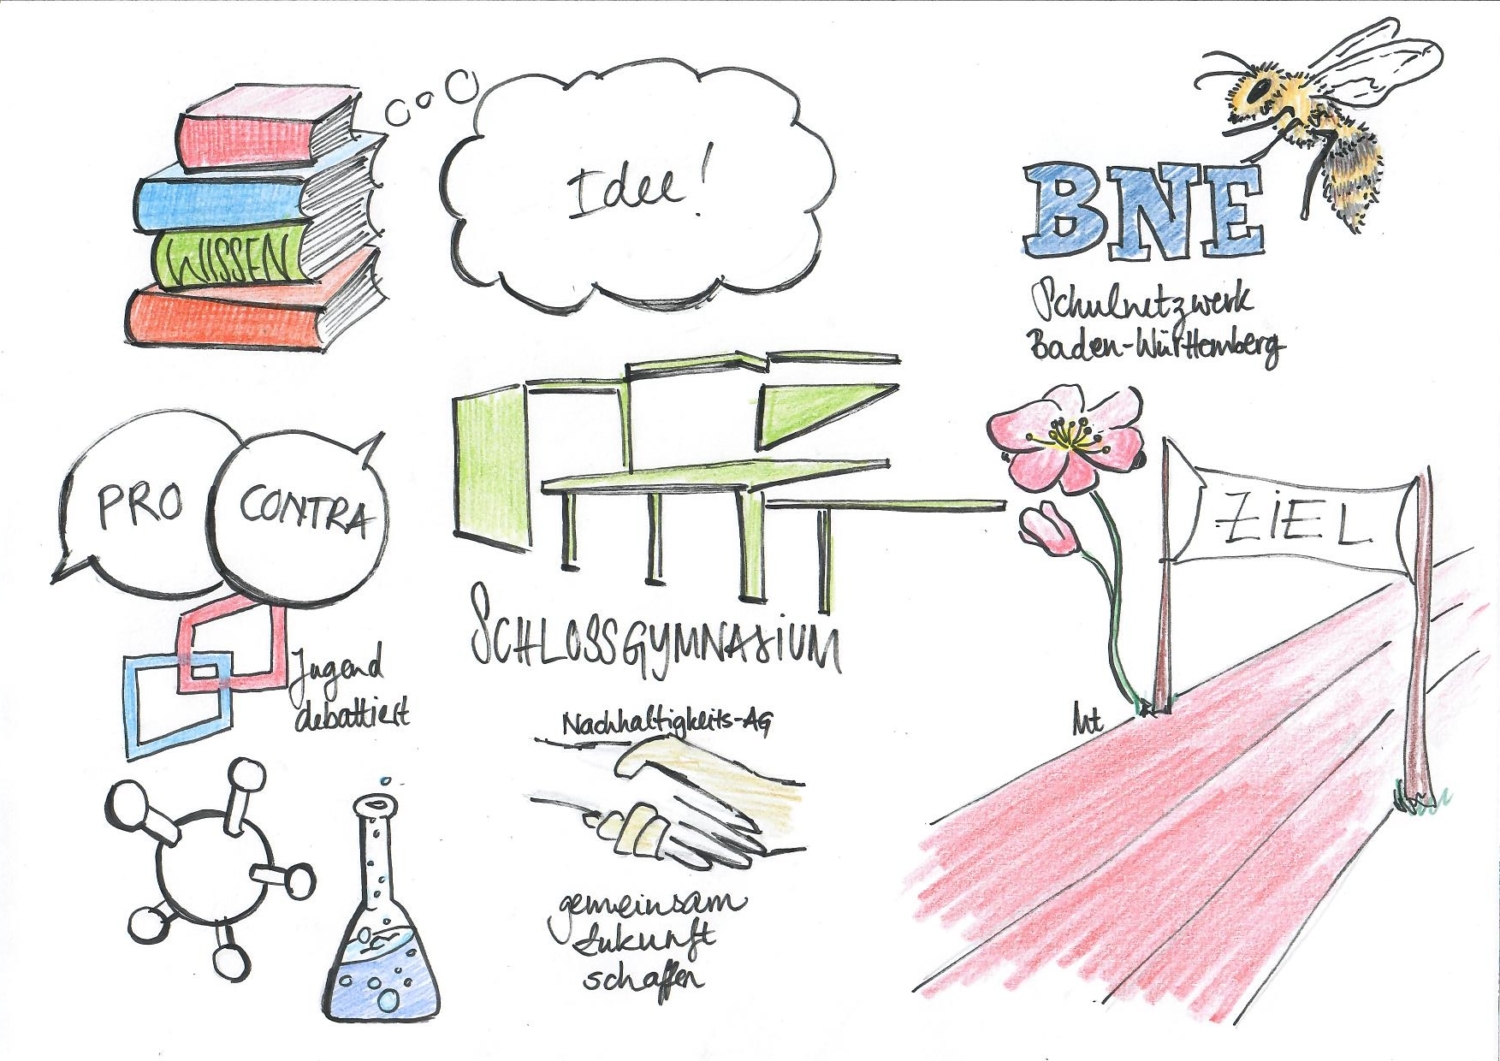 Idee!
WISSEN
BNE
Schulnetzwerk
Baden-Württemberg
PRO
CONTRA
Jugend
debattiert
SCHLOSSGYMNASIUM
ZIEL
Mt
Nachhaltigkeits-AG
gemeinsam
Zukunft
schaffen